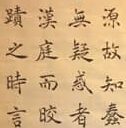 源故知蠢
無疑惑者
漢庭而皎
蹟之時言